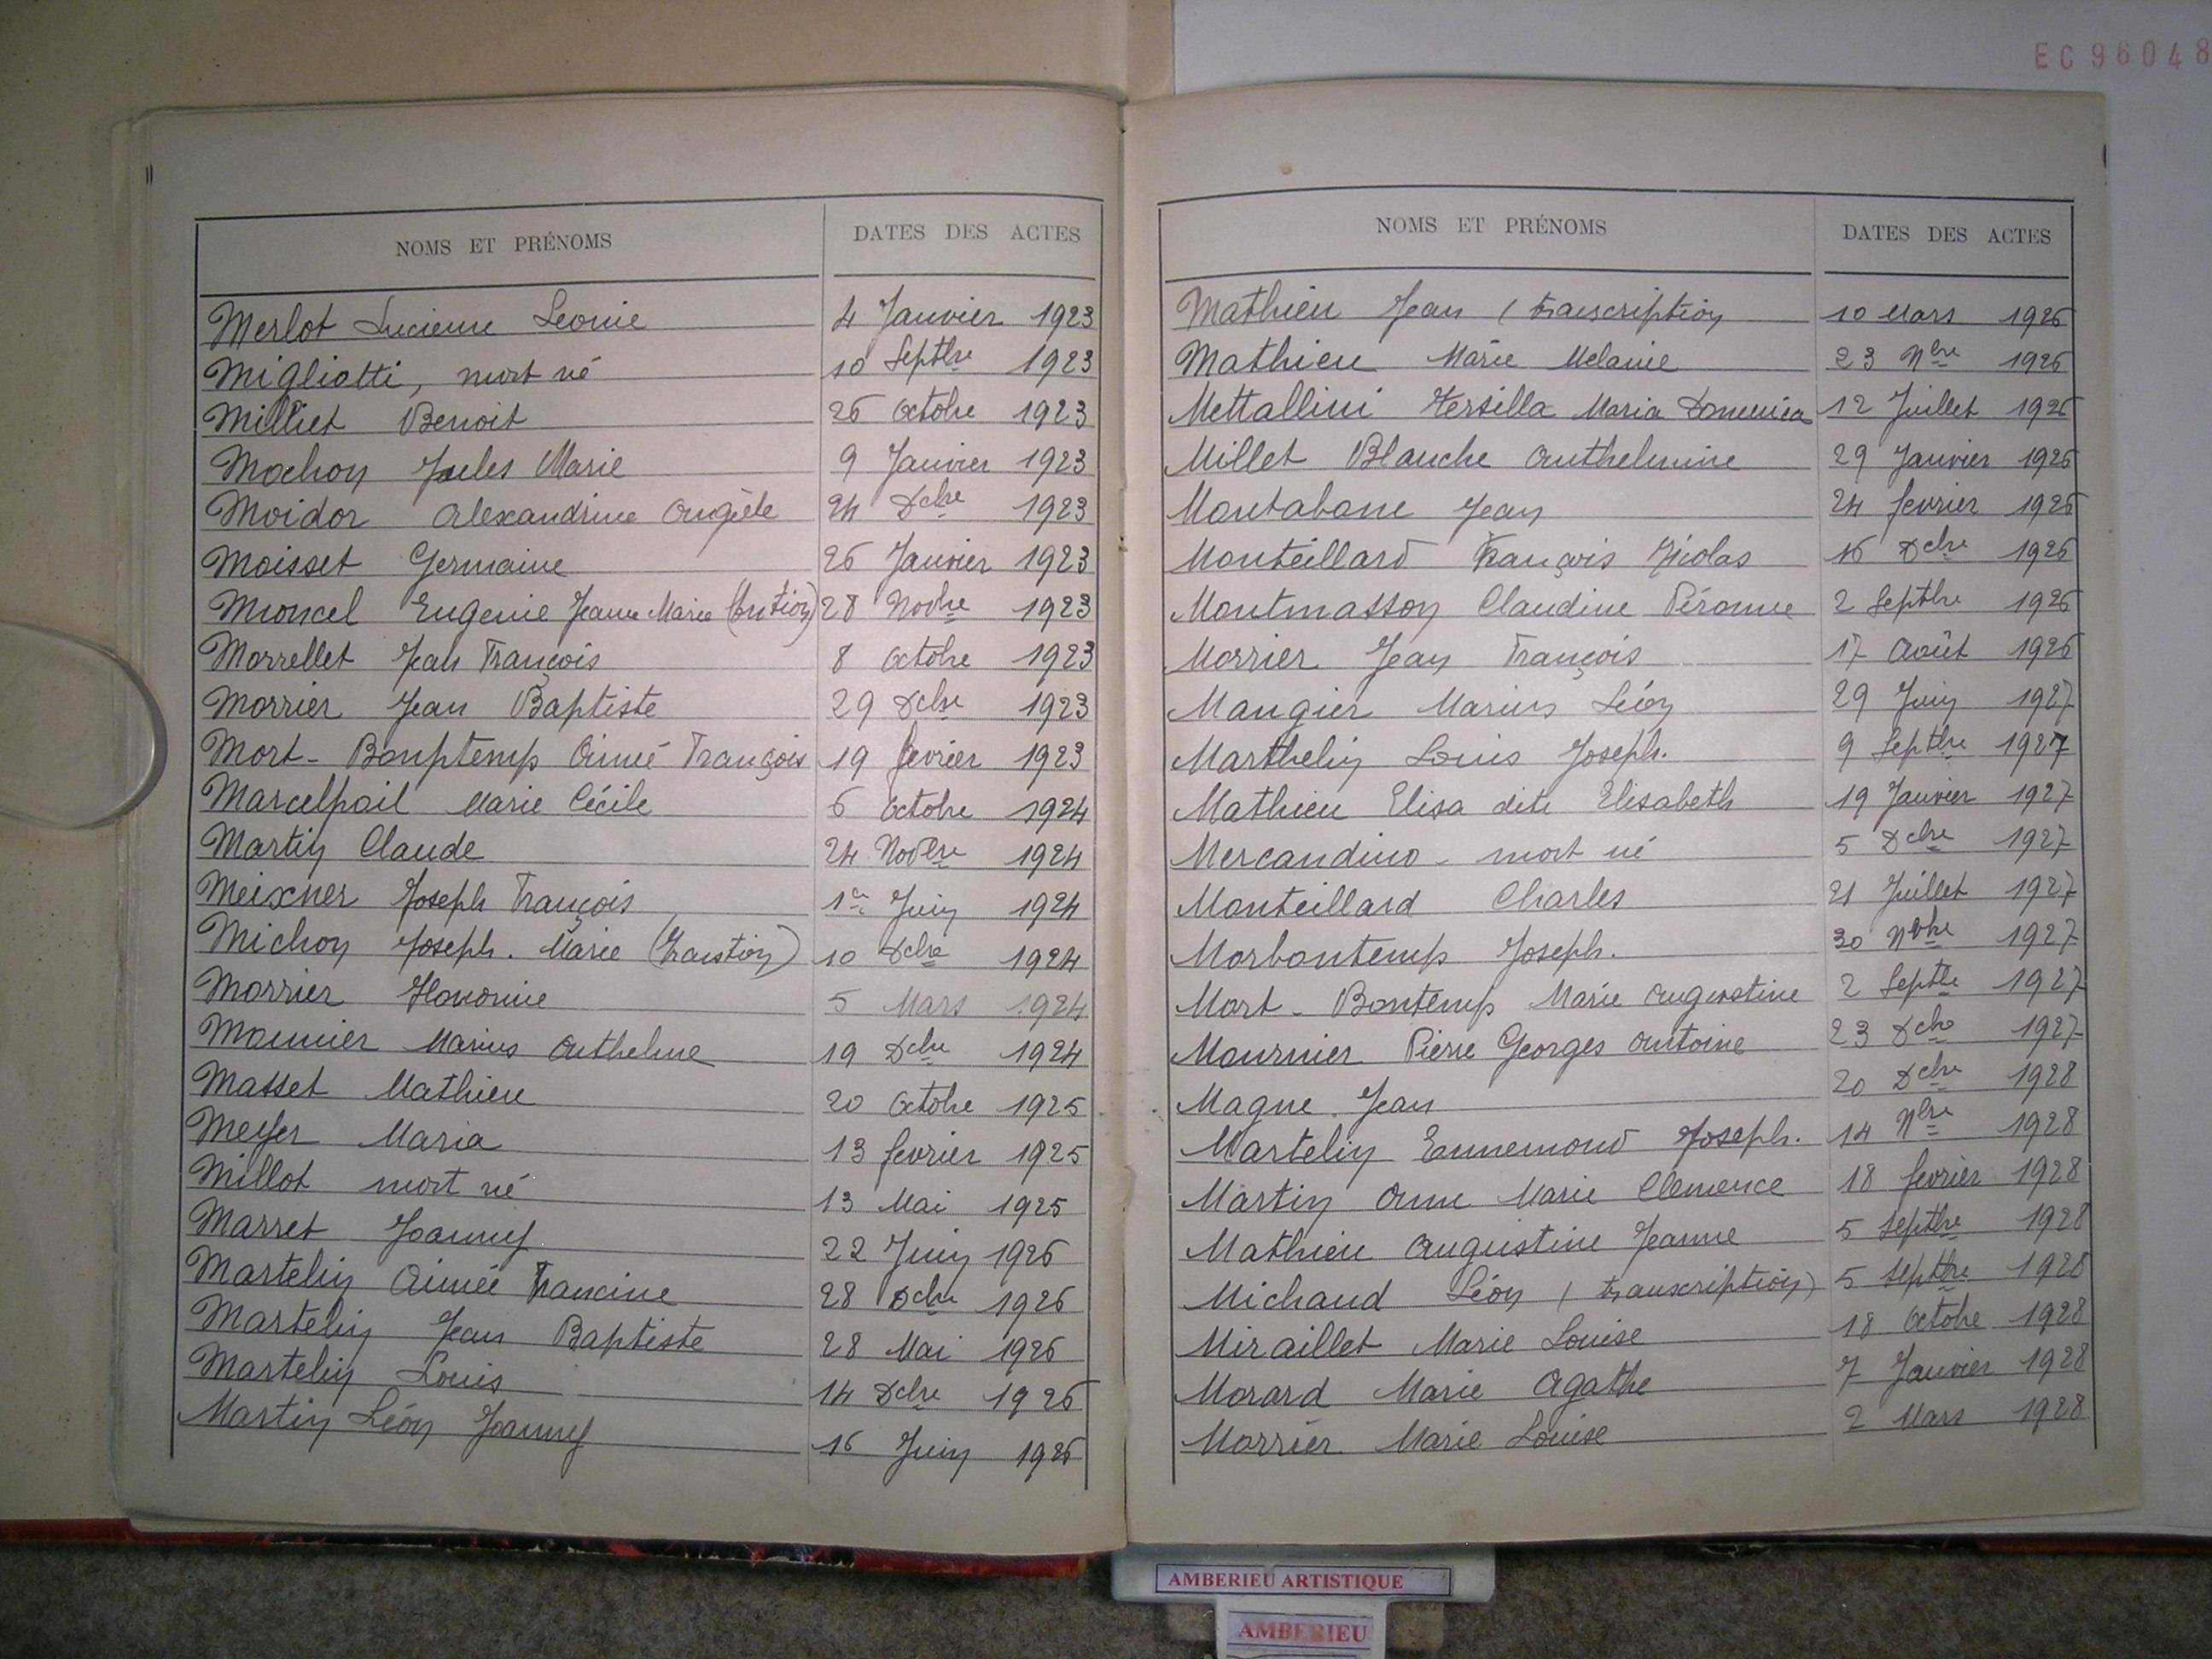 EC96048
NOMS ET PRÉNOMS DATES DES ACTES
Merlot Lucienne Leonie 4 Janvier 1923
Migliotti, mort né 10 Septbre 1923
Milliet Benoit 26 Octobre 1923
Mochon Jules Marie 9 Janvier 1923
Moidor Alexandrine Angèle 24 Dcbre 1923
Moisset Germaine 26 Janvier 1923
Moncel Eugenie Jeanne Marie 28 Novbre 1923
Morrellet Jean François 8 Octobre 1923
Morrier Jean Baptiste 29 Dcbre 1923
Mort-Bonptemp Aimé François 19 fevrier 1923
Marcelpoil Marie Cécile 6 Octobre 1924
Martin Claude 24 Novbre 1924
Meixner Joseph François 1er Juin 1924
Michon Joseph. Marie (Transtion) 10 Dcbre 1924
Morrier Honorine 5 Mars 1924
Mounier Marius Anthelme 19 Dcbre 1924
Masset Mathieu 20 Octobre 1925
Meyer Maria 13 fevrier 1925
Millot mort né 13 Mai 1925
Marret Joanny 22 Juin 1926
Martelin Aimée Francine 28 Dcbre 1926
Martelin Jean Baptiste 28 Mai 1926
Martelin Louis 14 Dcbre 1926
Martin Léon Joanny 16 Juin 1926
NOMS ET PRÉNOMS DATES DES ACTES
Mathieu Jean (transcription 10 Mars 1926
Mathieu Marie Melanie 23 Nbre 1926
Mettallini Hersilla Maria Domenica 12 Juillet 1926
Millet Blanche Anthelmine 29 Janvier 1926
Montabone Jean 24 fevrier 1926
Monteillard François Nicolas 16 Dcbre 1926
Montmasson Claudine Péronne 2 Septbre 1926
Morrier Jean François 17 Août 1926
Maugier Marius Léon 29 Juin 1927
Marthelin Louis Joseph. 9 Septbre 1927
Mathieu Elisa dite Elisabeth 19 Janvier 1927
Mercandino - mort né 5 Dcbre 1927
Monteillard Charles 21 Juillet 1927
Morbontemps Joseph. 30 Nbre 1927
Mort-Bontemp Marie Augustine 2 Septbre 1927
Mournier Pierre Georges Antoine 23 Dcbre 1927
Magne Jean 20 Dcbre 1928
Martelin Ennemond Joseph. 14 Nbre 1928
Martin Anne Marie Clemence 18 fevrier 1928
Mathieu Augustine Jeanne 5 Septbre 1928
Michaud Léon (transcription) 5 Septbre 1928
Miraillet Marie Louise 18 Octobre 1928
Morard Marie Agathe 7 Janvier 1928
Morrier Marie Louise 2 Mars 1928
AMBERIEU ARTISTIQUE
AMBERIEU